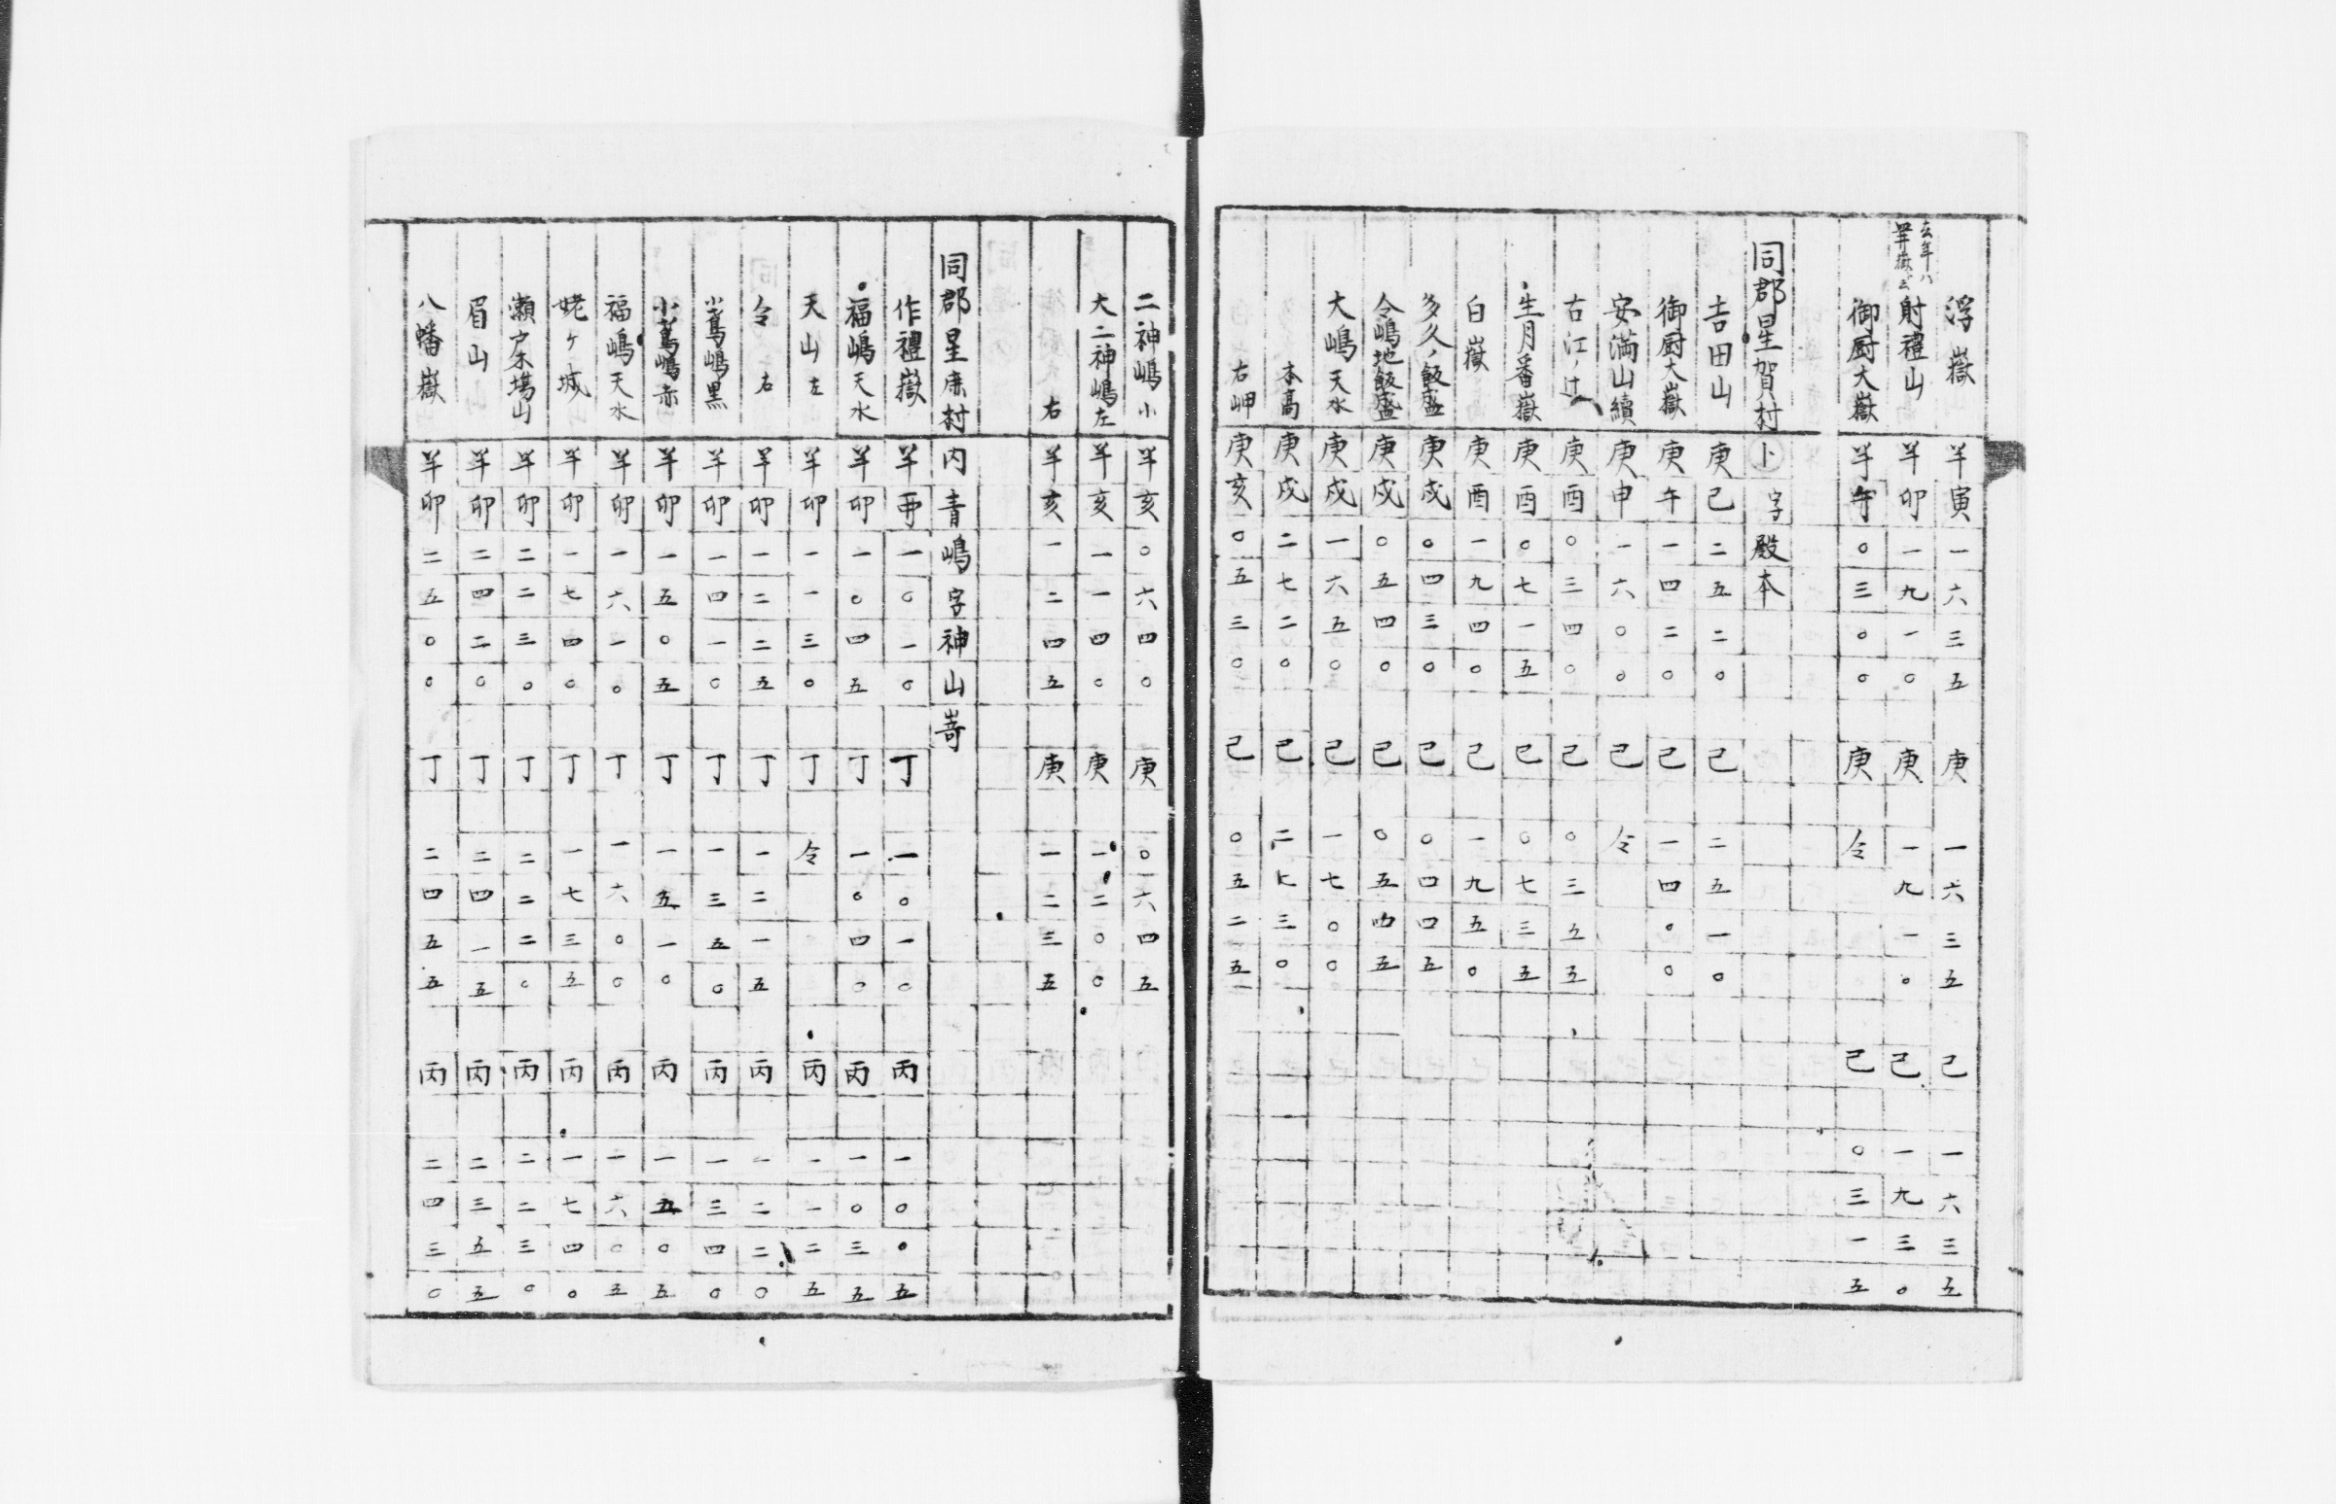 浮嶽 羊寅一六三五 庚一六三五 己一六三五
去年ハ
羊嶽ト云
射禮山 羊卯一九一〇 庚一九一〇 己一九三〇
御厨大嶽 羊午〇三〇〇 庚仝 己〇三一五
同郡星賀村 ㋣字殿本
吉田山 庚己二五二〇 己二五一〇
御厨大嶽 庚午一四二〇 己一四〇〇
安満山續 庚申一六〇〇 己仝
古江ノ辻 庚酉〇三四〇 己〇三五五
生月番嶽 庚酉〇七一五 己〇七三五
白嶽 庚酉一九四〇 己一九五〇
多久ノ飯盛 庚戌〇四三〇 己〇四四五
仝嶋地飯盛 庚戌〇五四〇 己〇五四五
大嶋天水 庚戌一六五〇 己一七〇〇
本高 庚戌二七二〇 己二七三〇
右岬 庚亥〇五三〇 己〇五二五
二神嶋小 羊亥〇六四〇 庚〇六四五
大二神嶋左 羊亥一一四〇 庚一二〇〇
右 羊亥一二四五 庚一二三五
同郡星鹿村内青嶋字神山嵜
作禮嶽 羊酉一〇一〇 丁一〇一〇 丙一〇〇五
福嶋天水 羊卯一〇四五 丁一〇四〇 丙一〇三五
天山左 羊卯一一三〇 丁仝 丙一一二五
仝右 羊卯一二二五 丁一二一五 丙一二二〇
小鳶嶋黒 羊卯一四一〇 丁一三五〇 丙一三四〇
小鳶嶋赤 羊卯一五〇五 丁一五一〇 丙一五〇五
福嶋天水 羊卯一六一〇 丁一六〇〇 丙一六〇五
姥ヶ城 羊卯一七四〇 丁一七三五 丙一七四〇
瀬戸木場山 羊卯二二三〇 丁二二二〇 丙二二三〇
眉山 羊卯二四二〇 丁二四一五 丙二三五五
八幡嶽 羊卯二五〇〇 丁二四五五 丙二四三〇